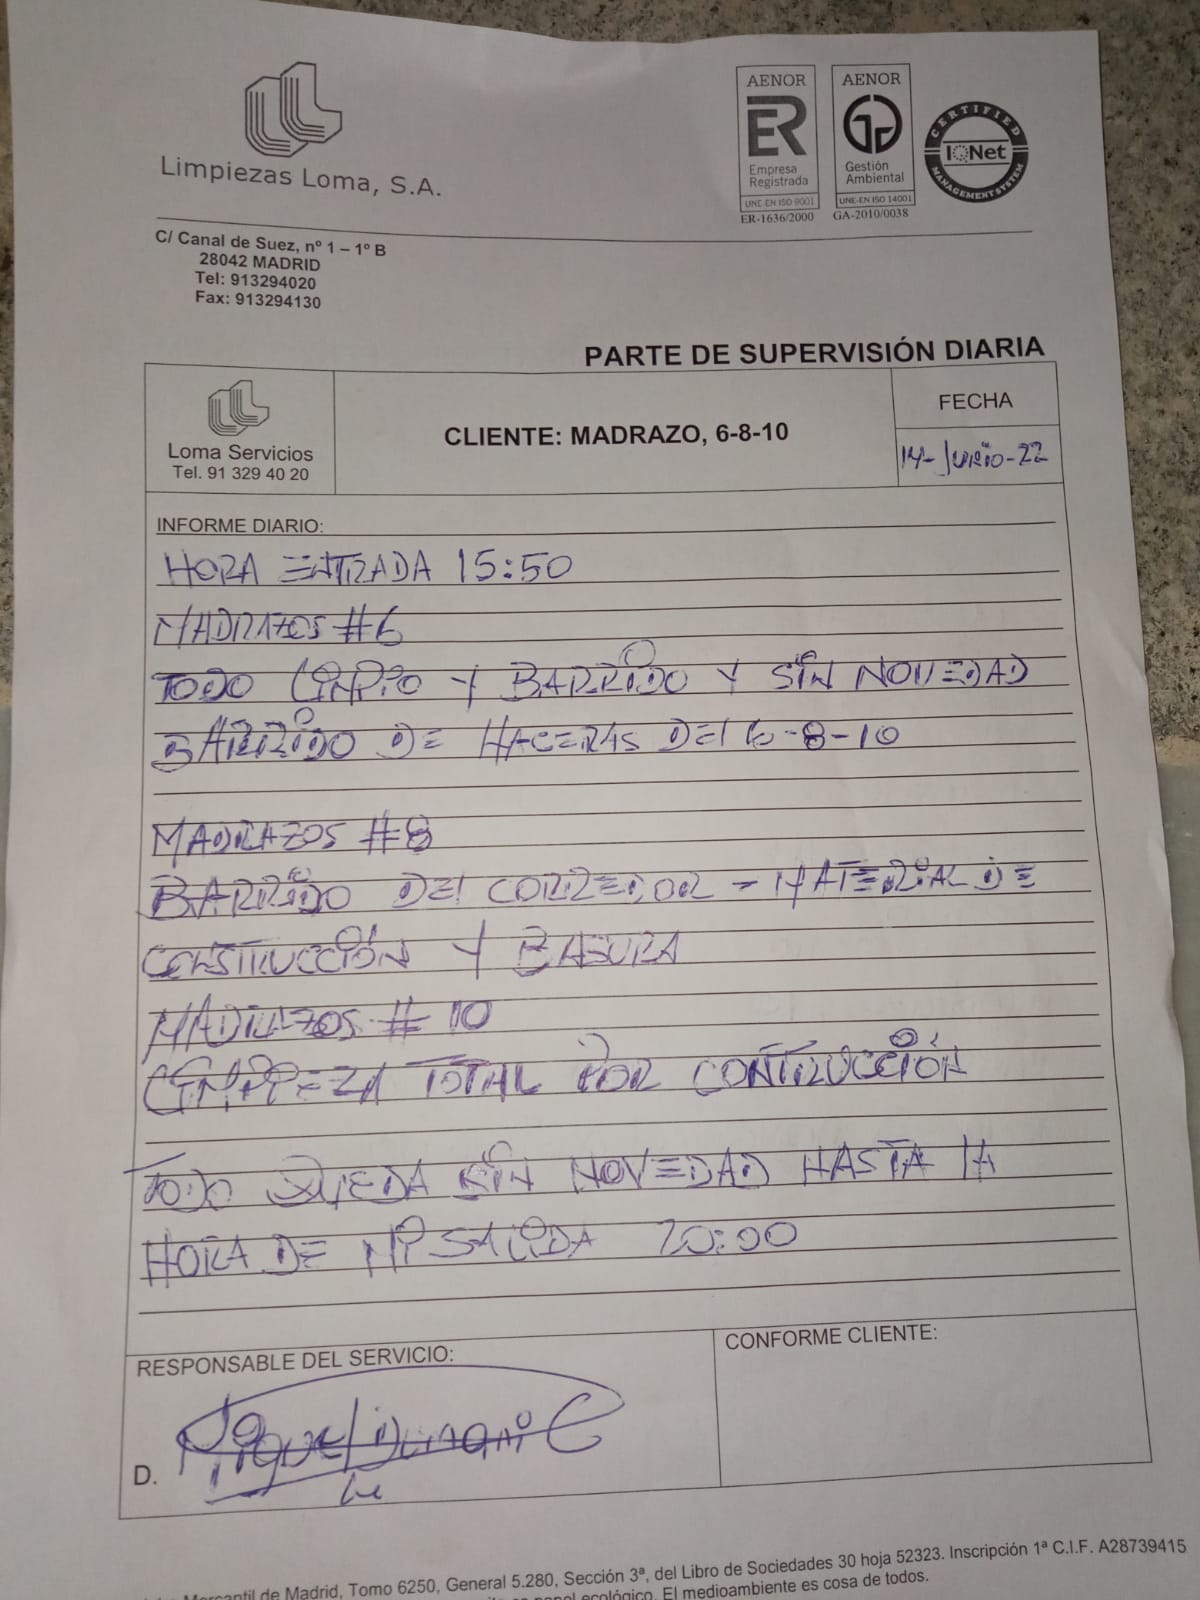 Limpiezas Loma, S.A.
AENOR
ER
Empresa
Registrada
UNE-EN ISO 9001
ER-1636/2000
AENOR
Gestión
Ambiental
UNE-EN ISO 14001
GA-2010/0038
CERTIFIED
IQNet
MANAGEMENT SYSTEM
C/ Canal de Suez, nº 1 – 1º B
28042 MADRID
Tel: 913294020
Fax: 913294130
PARTE DE SUPERVISIÓN DIARIA
Loma Servicios
Tel. 91 329 40 20
CLIENTE: MADRAZO, 6-8-10
FECHA
14-JUNIO-22
INFORME DIARIO:
HORA ENTRADA 15:50
MADRAZOS #6
TODO LIMPIO Y BARRIDO Y SIN NOVEDAD
BARRIDO DE HACERAS DEL 6-8-10
MADRAZOS #8
BARRIDO DEL CORREDOR - MATERIAL DE
CONSTRUCCIÓN Y BASURA
MADRAZOS # 10
LIMPIEZA TOTAL POR CONTRUCCIÓN
TODO QUEDA SIN NOVEDAD HASTA LA
HORA DE MI SALIDA 20:00
RESPONSABLE DEL SERVICIO:
CONFORME CLIENTE:
D.
Mercantil de Madrid, Tomo 6250, General 5.280, Sección 3ª, del Libro de Sociedades 30 hoja 52323. Inscripción 1ª C.I.F. A28739415
papel ecológico. El medioambiente es cosa de todos.